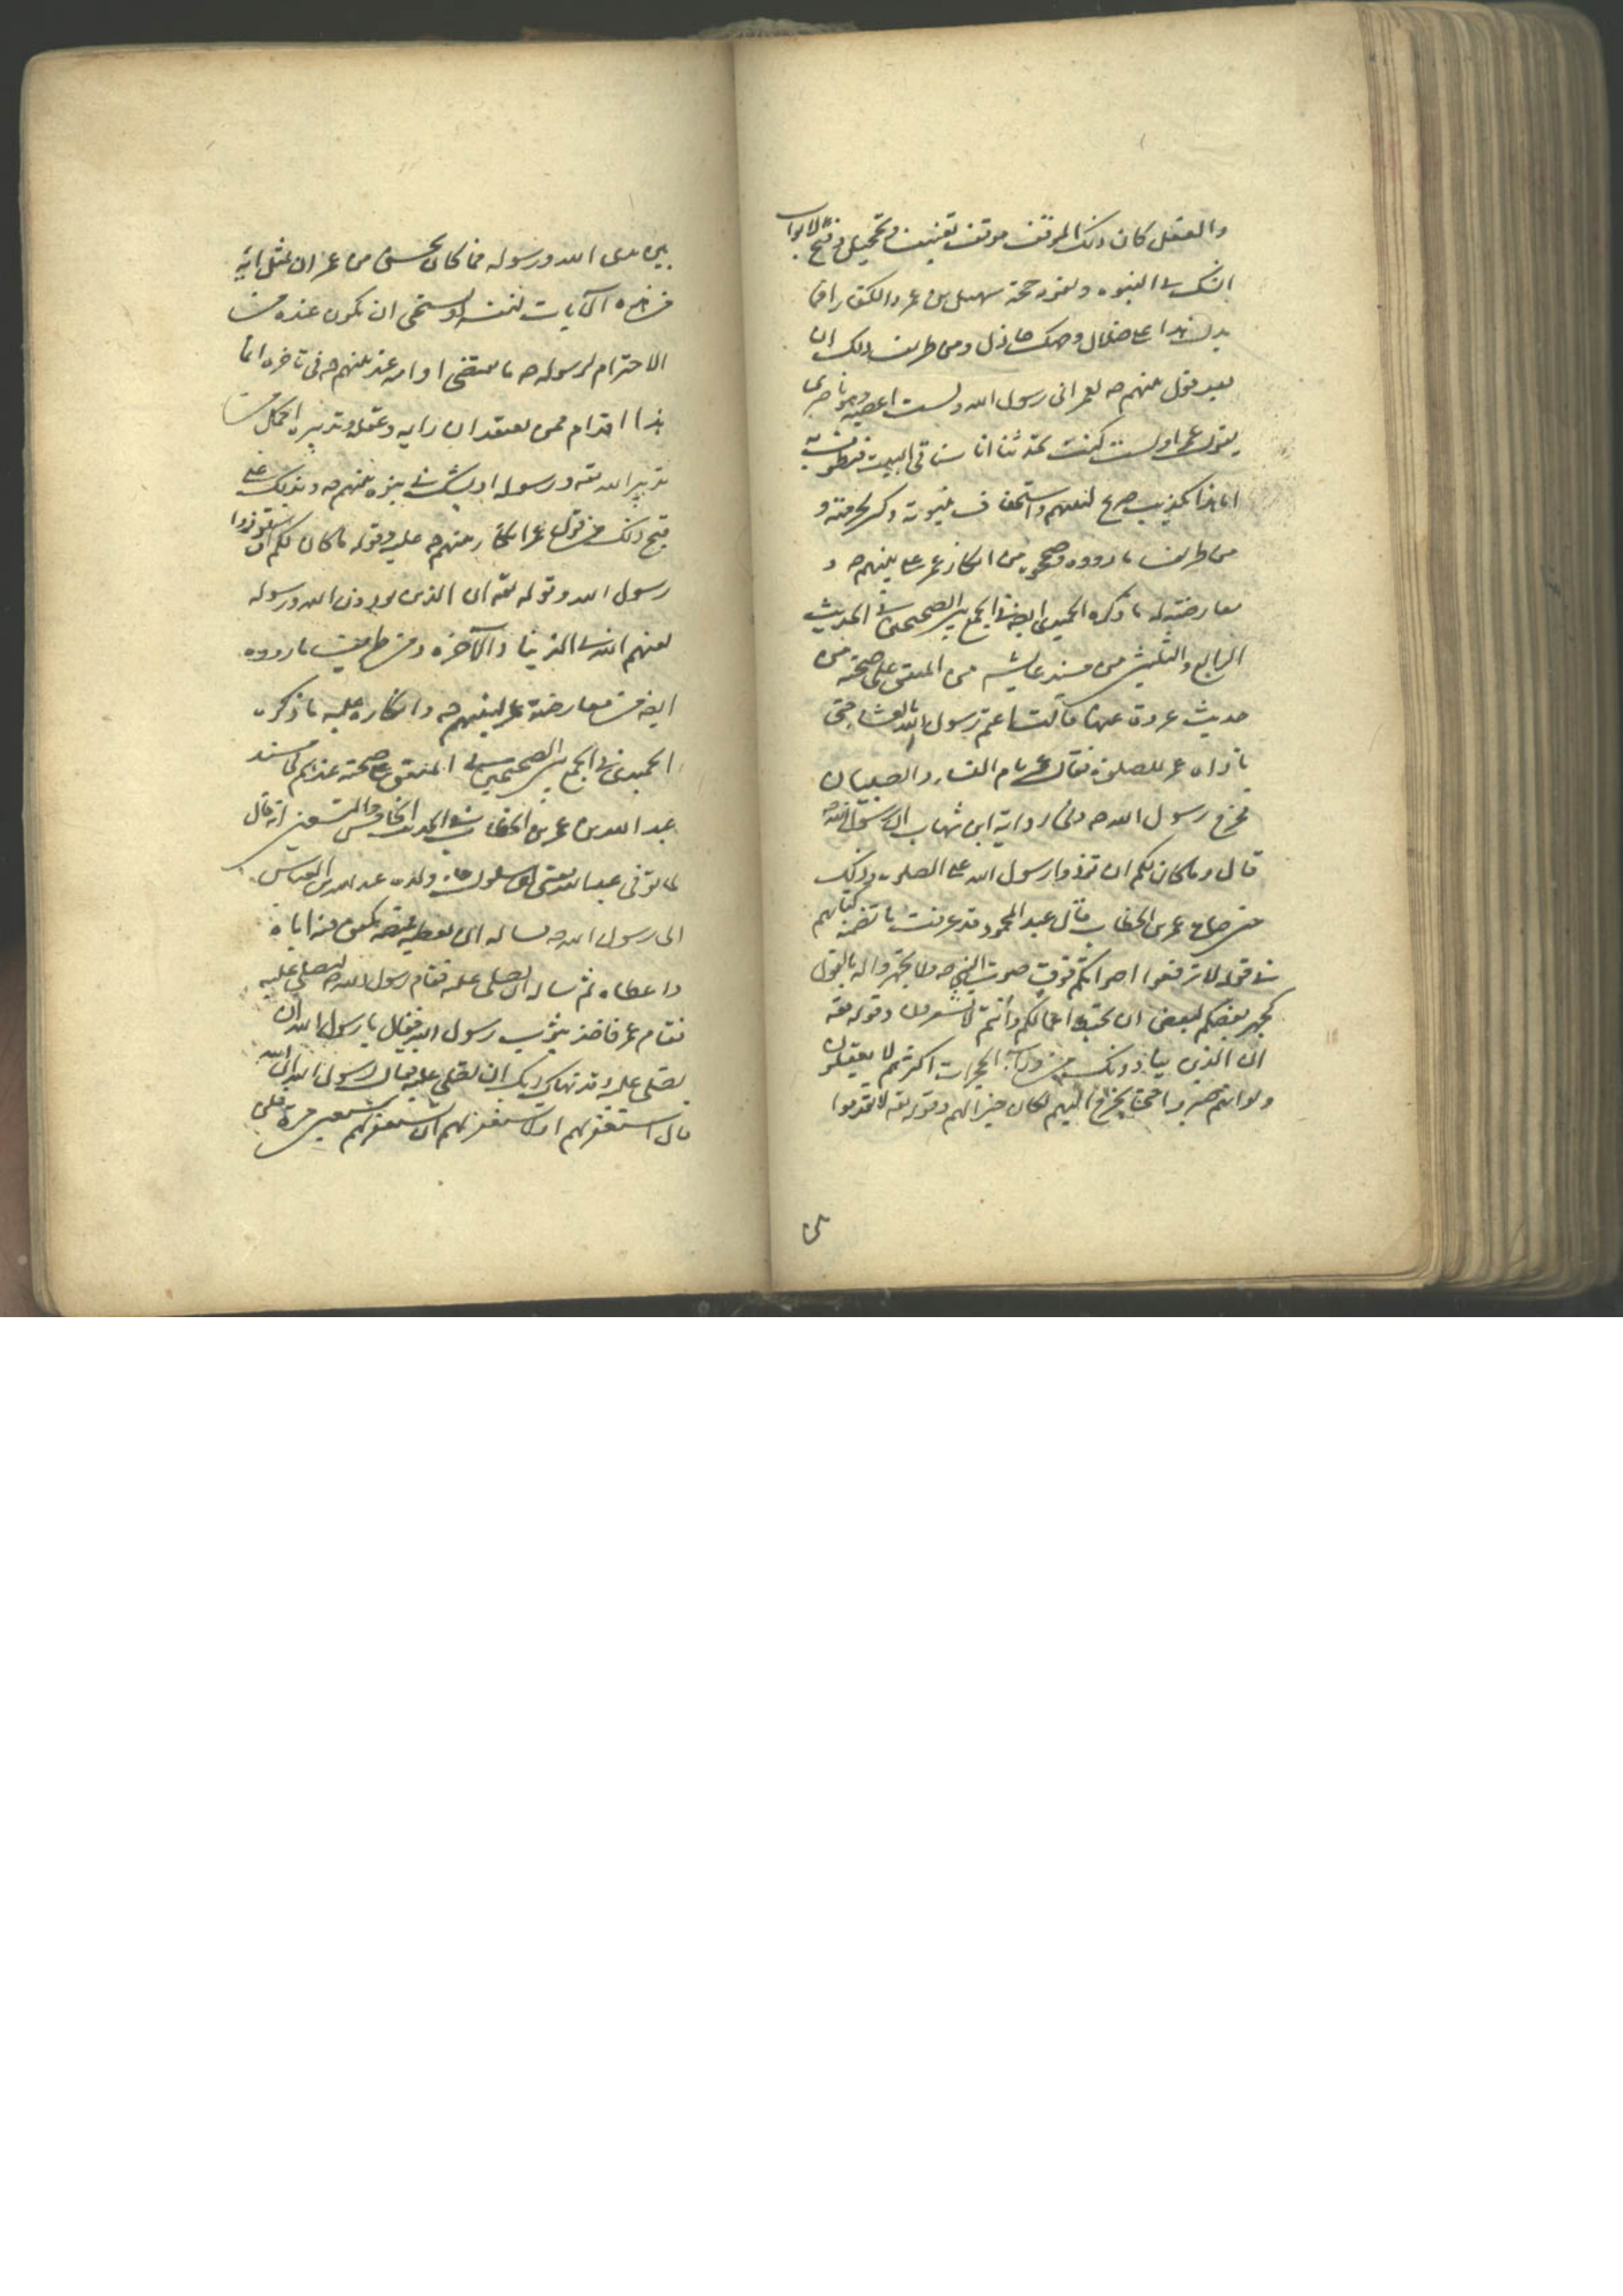 والعقل كان ذلك الموقف موقف تعنيف وتخجيل وفتح لابواب
الشك في النبوة وتقوية حجة سهيل بن عمرو والكفار افما
يدل هذا على ضلال وجهل هائل ومن طريف ذلك ان
بعد قول نبيهم صه لعمر اني رسول الله ولست اعصيه وهو ناصري
يقول عمر اولست كنت تحدثنا انا سناتي البيت فنطوف به
اما هذا تكذيب صريح لنبيهم واستخفاف بنبوته وكسر لحرمته و
من طريف ما رووه وصححوه من انكار عمر على نبيهم صه و
معارضته له ما ذكره الحميدي ايضا في الجمع بين الصحيحين في الحديث
الرابع والثلثين من مسند عايشه من المتفق على صحته من
حديث عروة عنها قالت اعتم رسول الله بالعشاء حتى
ناداه عمر للصلوة فقال عمر نام النساء والصبيان
فخرج رسول الله صه وفي رواية ابن شهاب ان رسول الله صه
قال وما كان لكم ان تنزروا رسول الله على الصلوة وذلك
حين صاح عمر بن الخطاب قال عبد المحمود قد عرفت ما تضمنه كتابهم
في قوله لا ترفعوا اصواتكم فوق صوت النبي صه ولا تجهروا له بالقول
كجهر بعضكم لبعض ان تحبط اعمالكم وانتم لا تشعرون وقوله تعه
ان الذين ينادونك من وراء الحجرات اكثرهم لا يعقلون
ولو انهم صبروا حتى تخرج اليهم لكان خيرا لهم وقوله تعه لا تقدموا
بين يدي الله ورسوله فما كان يحسن من عمر ان يمثل اية
من هذه الايات لنفسه او يستحي ان يكون عنده من
الاحترام لرسوله صه ما يقتضي او امه عند نبيهم صه في تاخره انما
هذا اقدام من يعتقد ان رايه وعقله وتدبيره اكمل من
تدبير الله تعه ورسوله او يشك في نبوة نبيهم صه ويدلك على
قبح ذلك من قول عمر انكار نبيهم صه عليه وقوله ما كان لكم ان تنزروا
رسول الله وقوله تعه ان الذين يوذون الله ورسوله
لعنهم الله في الدنيا والاخرة ومن طريف ما رووه
ايضا من معارضة عمر لنبيهم صه وانكاره عليه ما ذكره
الحميدي في الجمع بين الصحيحين في المتفق على صحته عندهم في مسند
عبد الله بن عمر بن الخطاب في الحديث الخامس والتسعين انه قال
لما توفي عبد الله يعني ابن سلول جاء ولده عبد الله بن العباس
الى رسول الله صه فساله ان يعطيه قميصه يكفن فيه اباه
فاعطاه ثم ساله ان يصلي عليه فقام رسول الله صه ليصلي عليه
فقام عمر فاخذ بثوب رسول الله فقال يا رسول الله ان
يصلي عليه وقد نهاك ربك ان تصلي عليه فقال رسول الله ان الله
قال استغفر لهم او لا تستغفر لهم ان تستغفر لهم سبعين مرة فلن